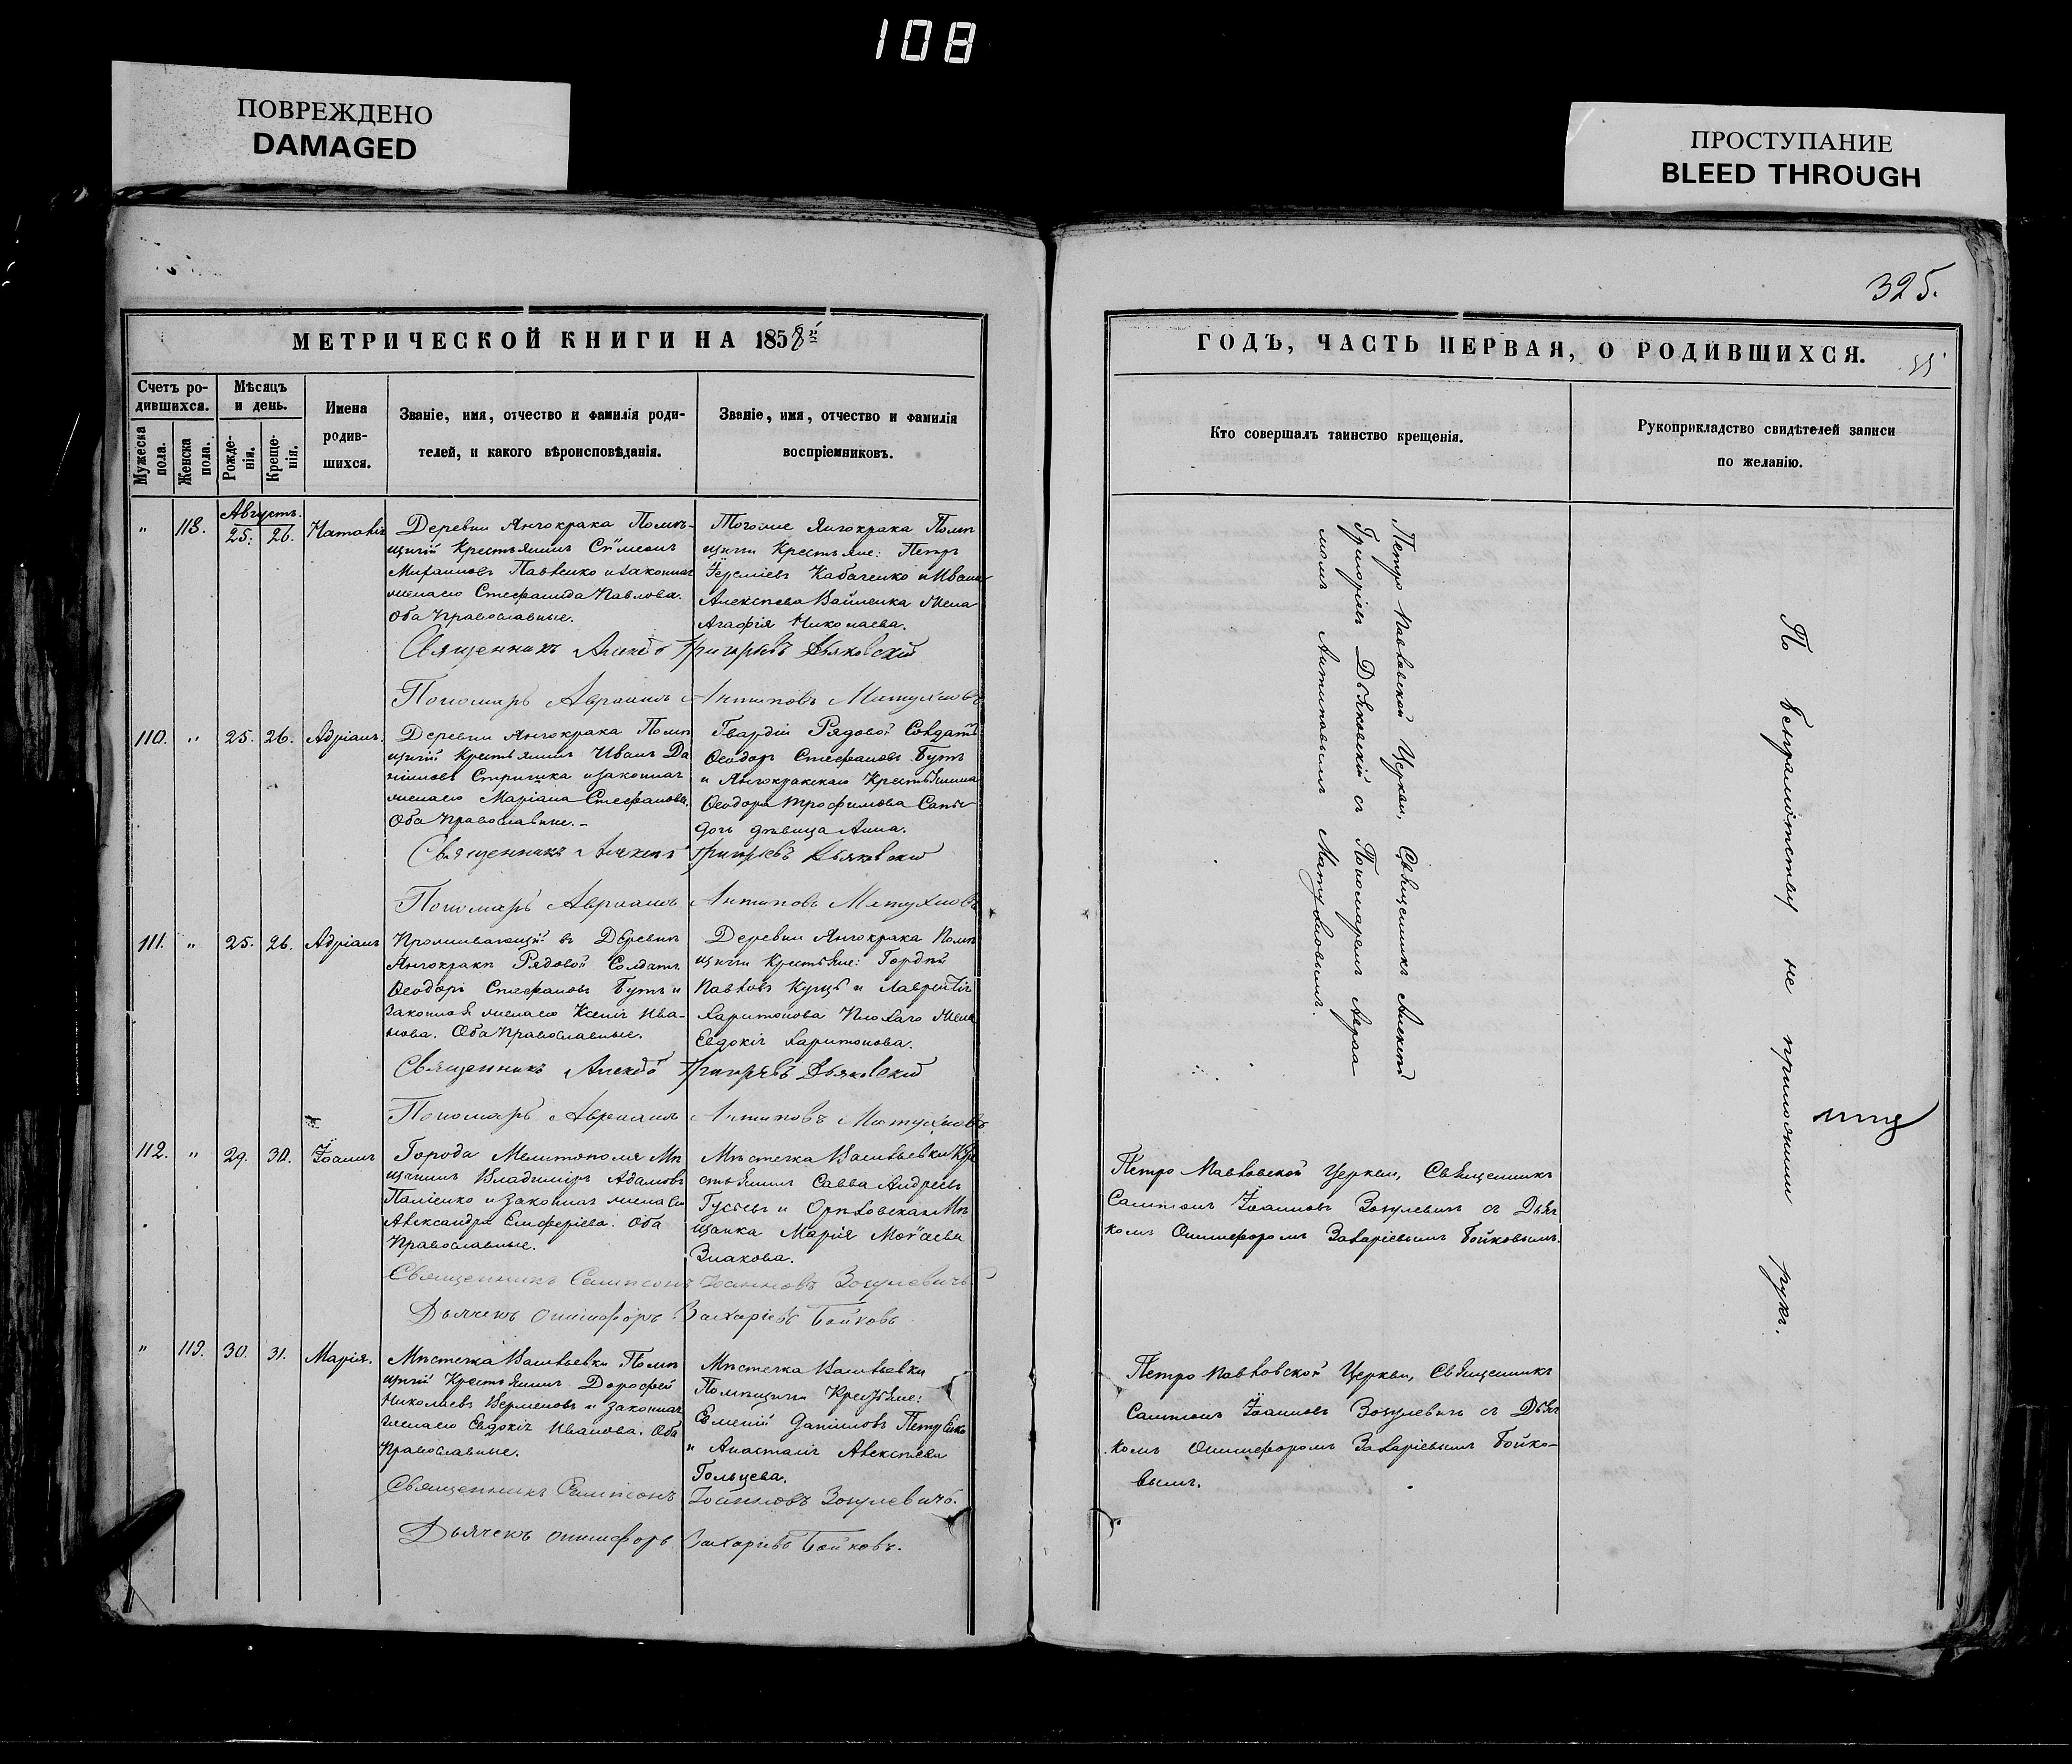 108
ПОВРЕЖДЕНО
DAMAGED
ПРОСТУПАНИЕ
BLEED THROUGH
325.
МЕТРИЧЕСКОЙ КНИГИ НА 1858й
Счетъ ро-
дившихся.
Мужеска
пола.
Женска
пола.
Мѣсяцъ
и день.
Рожде-
нія.
Креще-
нія.
Имена
родив-
шихся.
Званіе, имя, отчество и фамилія роди-
телей, и какого вѣроисповѣданія.
Званіе, имя, отчество и фамилія
воспріемниковъ.
Августъ.
" 118. 25. 26. Наталія
Деревни Янчокрака Помѣ-
щичій Крестьянинъ Сѵмеонъ
Михаиловъ Павленко и законная
жена его Стефанида Павлова.
Оба Православные.
Тогоже Янчокрака Помѣ
щичьи Крестьяне: Петръ
Іереміевъ Кабаченко и Ивана
Алексѣева жена
Агафія Николаева.
Священникъ Алексѣй Григорьевъ Дьяковскій
Пономарь Авраамъ Антиповъ Матухновъ
110. " 25. 26. Адріанъ.
Деревни Янчокрака Помѣ
щичій Крестьянинъ Иванъ Да
ниловъ и законная
жена его Маріана Стефанова.
Оба Православные.-
Гвардіи Рядовой Солдатъ
Ѳеодоръ Стефановъ Бутъ
и Янчокракскаго Крестьянина
Ѳеодора Трофимова
дочь дѣвица Анна.
Священникъ Алексѣй Григорьевъ Дьяковскій
Пономарь Авраамъ Антиповъ Матухновъ
111. " 25. 26. Адріанъ
Проживающій въ Деревнѣ
Янчокракѣ Рядовой Солдатъ
Ѳеодоръ Стефановъ Бутъ и
законная жена его Ксенія Ива-
нова. Оба Православные.
Деревни Янчокрака Помѣ
щичьи Крестьяне: Гордѣй
Павловъ Куцъ и Лаврентія
Харитонова жена
Евдокія Харитонова.
Священникъ Алексѣй Григорьевъ Дьяковскій
Пономарь Авраамъ Антиповъ Матухновъ
112. " 29. 30. Іоаннъ
Города Мелитополя Мѣ
щанинъ Владиміръ Адамовъ
Паліенко и законная жена его
Александра Елеферіева. Оба
Православные.
Мѣстечка Васильевки Кре
стьянинъ Савва Андреевъ
Гусевъ и Орѣховская Мѣ
щанка Марія Моѵсеева
Знакова.
Священникъ Сампсонъ Іоанновъ Зосулевичъ
Дьячекъ Онисифоръ Захаріевъ Бойковъ
" 119. 30. 31. Марія.
Мѣстечка Васильевки Помѣ
щичій Крестьянинъ Дорофей
Николаевъ и законная
жена его Евдокія Иванова. Оба
Православные.
Мѣстечка Васильевки
Помѣщичьи Крестьяне:
Евменій Даніиловъ Петренко
и Анастасія Алексѣева
Гольцева.
Священникъ Сампсонъ Іоанновъ Зосулевичъ.
Дьячекъ Онисифоръ Захаріевъ Бойковъ.
ГОДЪ, ЧАСТЬ ПЕРВАЯ, О РОДИВШИХСЯ.
Кто совершалъ таинство крещенія.
Рукоприкладство свидѣтелей записи
по желанію.
Петро Павловской Церкви, Священникъ Алексѣй
Григоріевъ Дьяковскій съ Пономаремъ Авраа
момъ Антиповымъ Матухновымъ.
Петро Павловской Церкви, Священникъ
Сампсонъ Іоанновъ Зосулевичъ съ Дьяч
комъ Онисифоромъ Захаріевымъ Бойковымъ.
Петро Павловской Церкви, Священникъ
Сампсонъ Іоанновъ Зосулевичъ съ Дьяч
комъ Онисифоромъ Захаріевымъ Бойко-
вымъ.
По безграмотству не приложили рукъ.